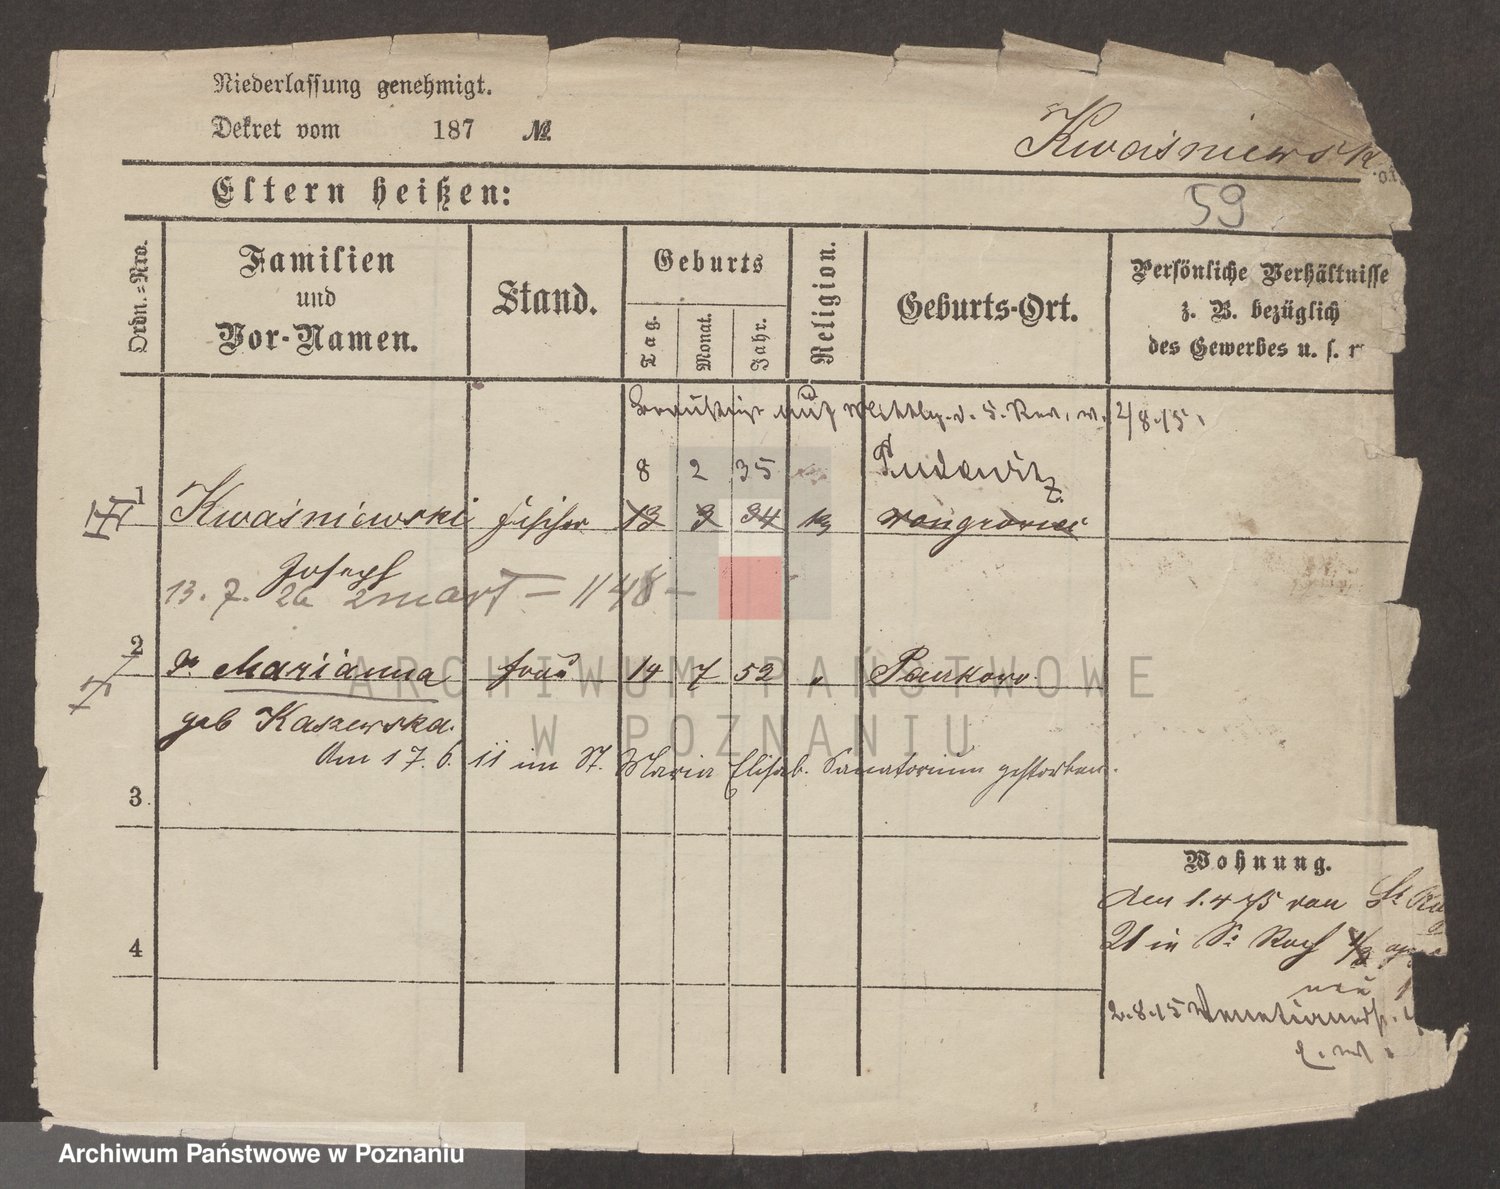 Niederlaſſung genehmigt.
Dekret vom 187 №.
Kwaśniewsk
59
Eltern heißen:
Ordn.=Nro.
Familien
und
Vor-Namen.
Stand.
Geburts
Tag.
Monat.
Jahr.
Religion.
Geburts-Ort.
Perſönliche Verhältniſſe
z. B. bezüglich
des Gewerbes u. ſ.
auf d. 5. Rev. v. 2/8.15.
8 2 35 Pudewitz
1 Kwaśniewski Fischer 13 3 34 Wongrowiec
Joseph
13. 7. 1148
2 Marianna Frau 14 7 52 " Pankowo
geb Kaszewska.
Am 17. 6. 11 im St. Maria Elisab. Sanatorium gestorben.
3
4
Wohnung.
den 1.4 75 von St
21 in St Roch
neu
2.8.15 Venetianerstr.
ARCHIWUM PAŃSTWOWE
W POZNANIU
Archiwum Państwowe w Poznaniu